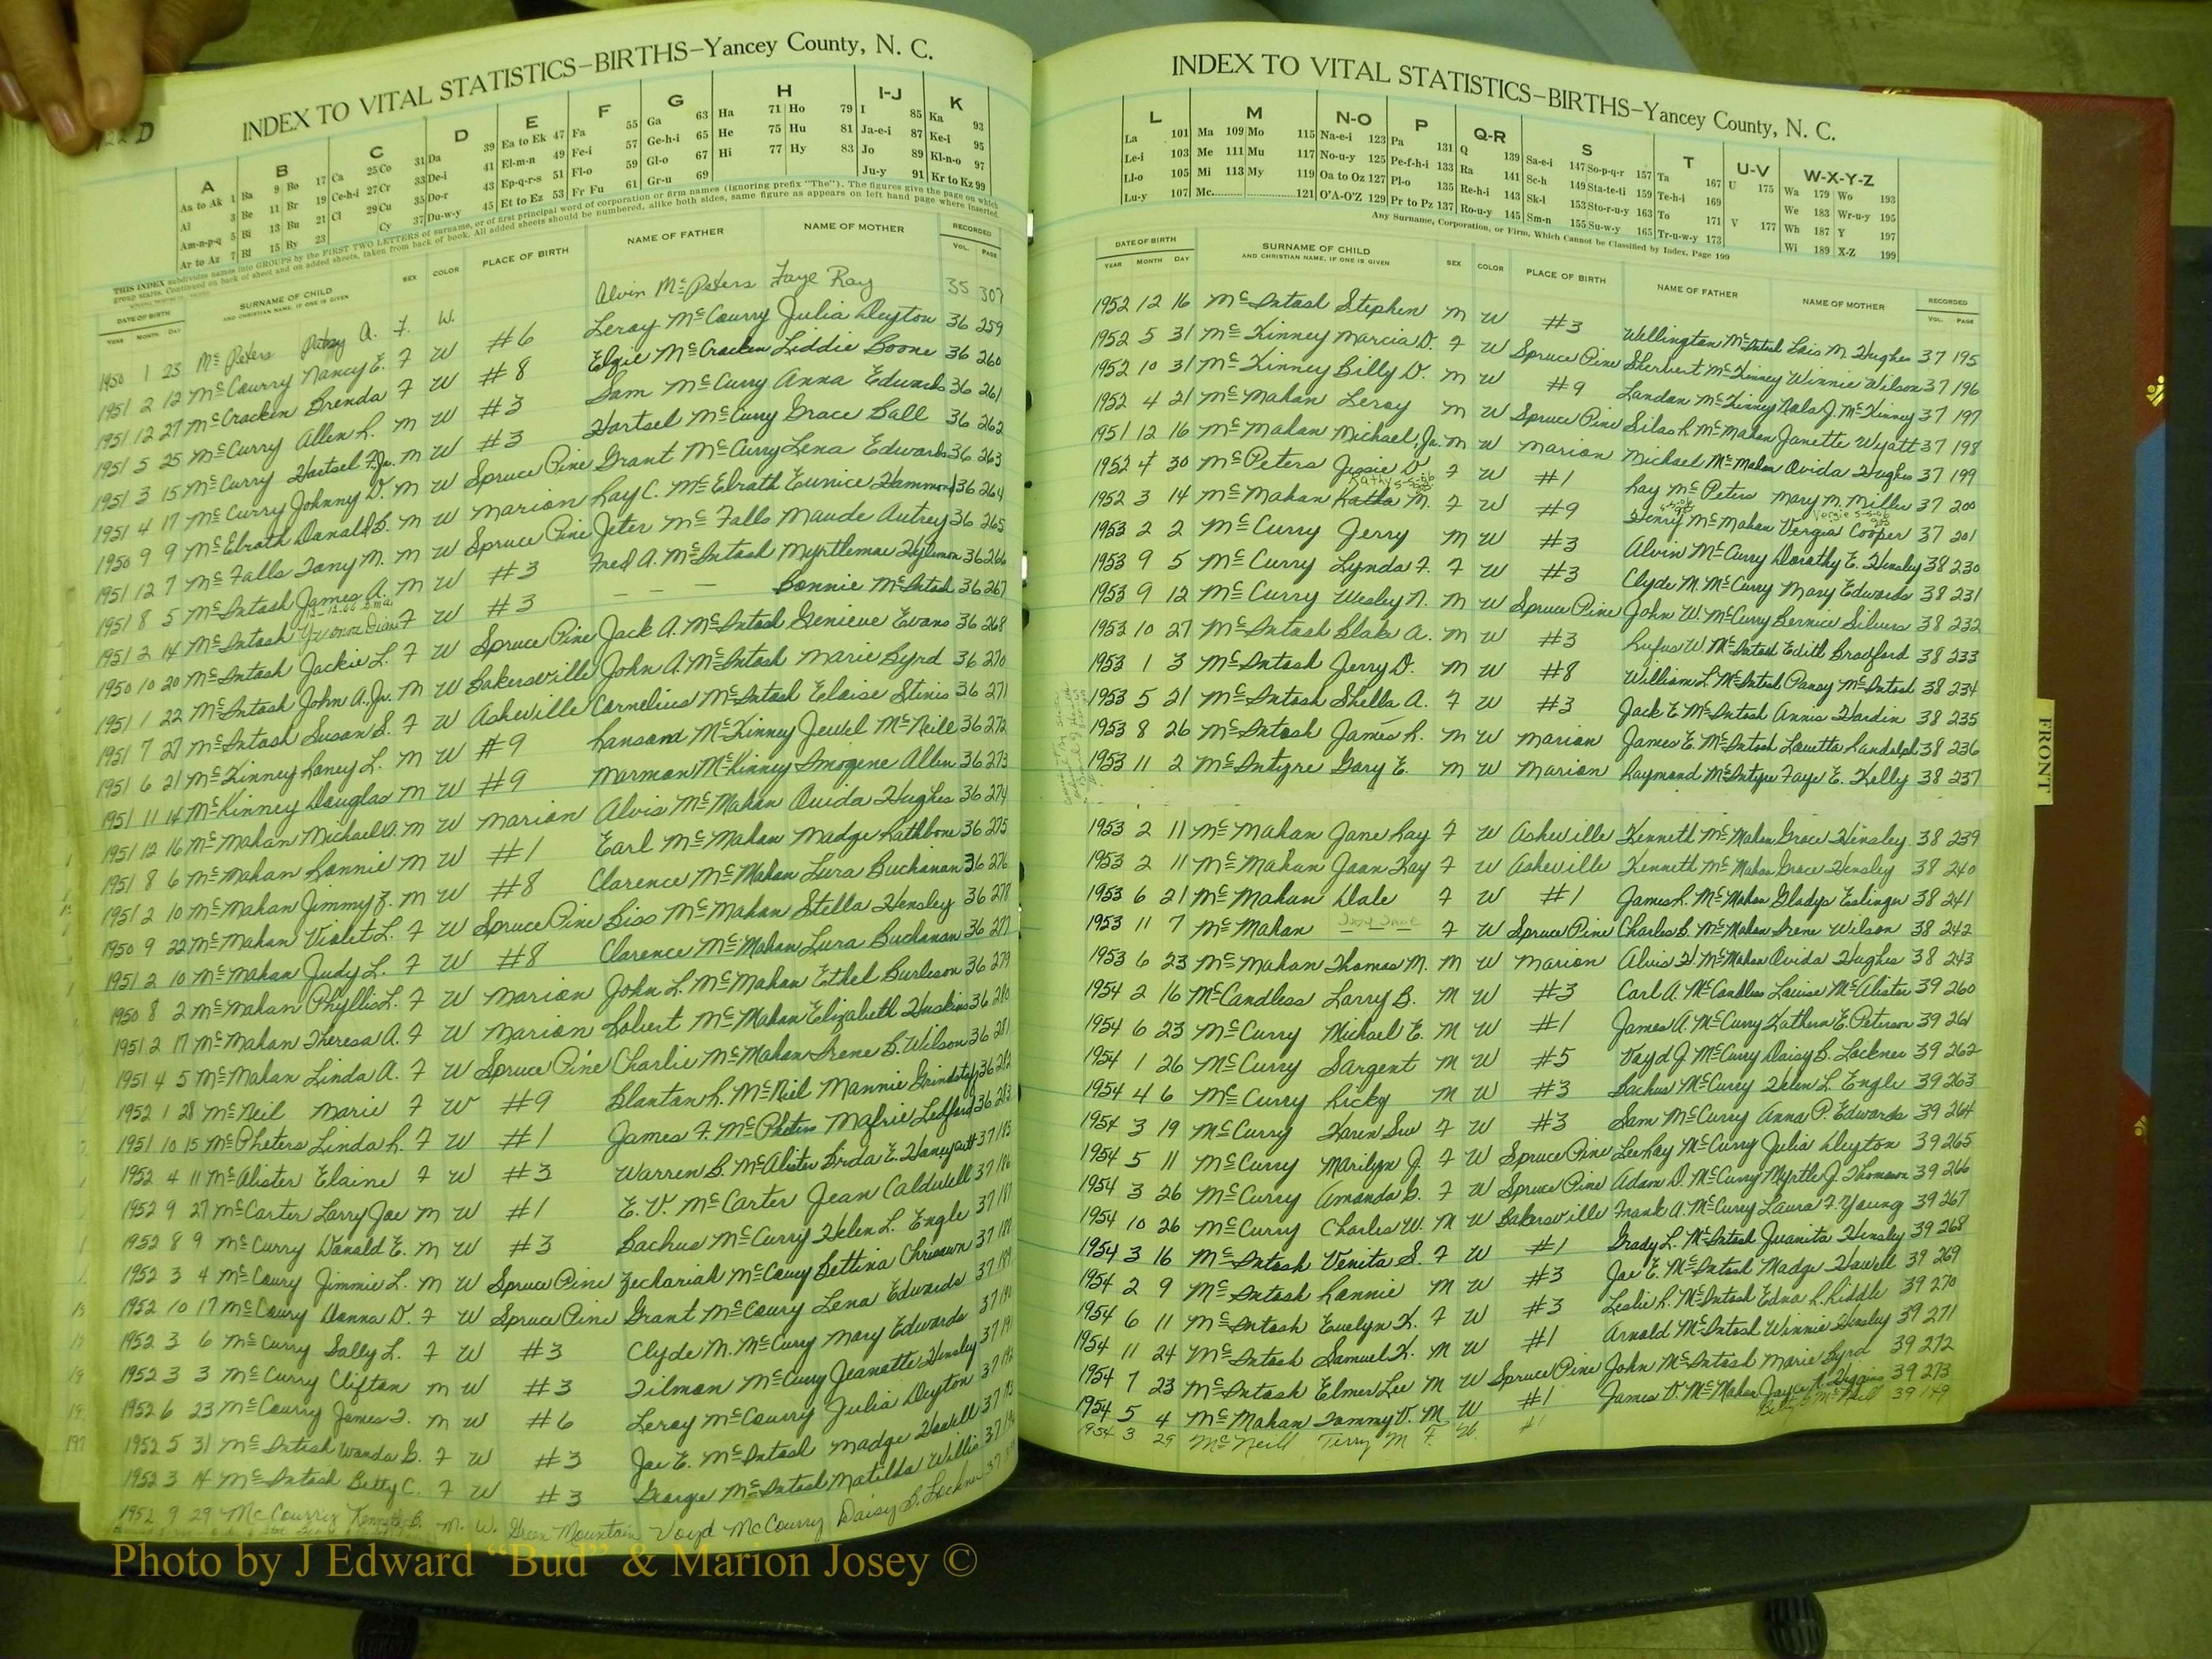 122 D
INDEX TO VITAL STATISTICS—BIRTHS—Yancey County, N. C.
A B C D E F G H I-J K
Aa to Ak 1 Ba 9 Bo 17 Ca 25 Co 31 Da 39 Ea to Ek 47 Fa 55 Ga 63 Ha 71 Ho 79 I 85 Ka 93
Al 3 Be 11 Br 19 Ce-h-i 27 Cr 33 De-i 41 El-m-n 49 Fe-i 57 Ge-h-i 65 He 75 Hu 81 Ja-e-i 87 Ke-i 95
Am-n-p-q 5 Bi 13 Bu 21 Cl 29 Cu 35 Do-r 43 Ep-q-r-s 51 Fl-o 59 Gl-o 67 Hi 77 Hy 83 Jo 89 Kl-n-o 97
Ar to Az 7 Bl 15 By 23 Cy 37 Du-w-y 45 Et to Ez 53 Fr Fu 61 Gr-u 69 Ju-y 91 Kr to Kz 99
THIS INDEX subdivides names into GROUPS by the FIRST TWO LETTERS of surname, or of first principal word of corporation or firm names (ignoring prefix "The"). The figures give the page on which
group starts. Continued on back of sheet and on added sheets, taken from back of book. All added sheets should be numbered, alike both sides, same figure as appears on left hand page where inserted.
DATE OF BIRTH SURNAME OF CHILD SEX COLOR PLACE OF BIRTH NAME OF FATHER NAME OF MOTHER RECORDED
YEAR MONTH DAY AND CHRISTIAN NAME, IF ONE IS GIVEN VOL. PAGE
1950 1 23 McPeters Patsy A. F. W. Alvin McPeters Faye Ray 35 307
1951 2 12 McCourry Nancy E. F W #6 Leroy McCourry Julia Deyton 36 259
1951 12 27 McCracken Brenda F W #8 Elzie McCracken Liddie Boone 36 260
1951 5 25 McCurry Allen R. M W #3 Sam McCurry Anna Edwards 36 261
1951 3 15 McCurry Hartsel F. Jr. M W #3 Hartsel McCurry Grace Ball 36 262
1951 4 17 McCurry Johnny D. M W Spruce Pine Grant McCurry Lena Edwards 36 263
1950 9 9 McElrath Donald B. M W Marion Ray C. McElrath Eunice Hammond 36 264
1951 12 7 McFalls Tony M. M W Spruce Pine Jeter McFalls Maude Autrey 36 265
1951 8 5 McIntosh James A. M W #3 Fred A. McIntosh Myrtlemae 36 266
1951 2 14 McIntosh F W #3 — — Bonnie McIntosh 36 267
1950 10 20 McIntosh Jackie L. F W Spruce Pine Jack A. McIntosh Genieve Evans 36 268
1951 1 22 McIntosh John A. Jr. M W Bakersville John A. McIntosh Marie Byrd 36 270
1951 7 27 McIntosh Susan S. F W Asheville Cornelius McIntosh Eloise Stinis 36 271
1951 6 21 McKinney Raney L. M W #9 Ransom McKinney Jewel McNeile 36 272
1951 11 14 McKinney Douglas M W #9 Marmon McKinney Imogene Allen 36 273
1951 12 16 McMahan Michael A. M W Marion Alvis McMahan Ouida Hughes 36 274
1951 8 6 McMahan Ronnie M W #1 Earl McMahan Madge Rathbone 36 275
1951 2 10 McMahan Jimmy Z. M W #8 Clarence McMahan Lura Buchanan 36 276
1950 9 22 McMahan Violet L. F W Spruce Pine Biss McMahan Stella Hensley 36 278
1951 2 10 McMahan Judy L. F W #8 Clarence McMahan Lura Buchanan 36 277
1950 8 2 McMahan Phyllis L. F W Marion John L. McMahan Ethel Burleson 36 279
1951 2 17 McMahan Theresa A. F W Marion Robert McMahan Elizabeth Huskins 36 280
1951 4 5 McMahan Linda A. F W Spruce Pine Charlie McMahan Irene B. Wilson 36 281
1952 1 28 McNeil Marie F W #9 Blanton R. McNeil Mannie Grindstaff 36 282
1951 10 15 McPheters Linda R. F W #1 James F. McPheters Mafrie Ledford 36 283
1952 4 11 McAlister Elaine F W #3 Warren B. McAlister Birda E. Honeycutt 37 185
1952 9 27 McCarter Larry Joe M W #1 E. V. McCarter Jean Caldwell 37 186
1952 8 9 McCurry Donald E. M W #3 Bachus McCurry Helen L. Engle 37 187
1952 3 4 McCoury Jimmie L. M W Spruce Pine Zechariah McCoury Bettina Chrisawn 37 188
1952 10 17 McCoury Donna D. F W Spruce Pine Grant McCoury Lena Edwards 37 189
1952 3 6 McCurry Sally L. F W #3 Clyde M. McCurry Mary Edwards 37 190
1952 3 3 McCurry Clifton M W #3 Tilmon McCurry Jeanette Hensley 37 191
1952 6 23 McCourry James T. M W #6 Leroy McCourry Julia Deyton 37 192
1952 5 31 McIntosh Wanda G. F W #3 Joe E. McIntosh Madge Howell 37 193
1952 3 14 McIntosh Betty C. F W #3 George McIntosh Matilda Willis 37 194
1952 9 29 McCourry Kenneth B. M. W. Green Mountain Voyd McCourry Daisy B. Lockner 37
INDEX TO VITAL STATISTICS—BIRTHS—Yancey County, N. C.
L M N-O P Q-R S T U-V W-X-Y-Z
La 101 Ma 109 Mo 115 Na-e-i 123 Pa 131 Q 139 Sa-e-i 147 So-p-q-r 157 Ta 167 U 175 Wa 179 Wo 193
Le-i 103 Me 111 Mu 117 No-u-y 125 Pe-f-h-i 133 Ra 141 Sc-h 149 Sta-te-ti 159 Te-h-i 169 We 183 Wr-u-y 195
Ll-o 105 Mi 113 My 119 Oa to Oz 127 Pl-o 135 Re-h-i 143 Sk-l 153 Sto-r-u-y 163 To 171 V 177 Wh 187 Y 197
Lu-y 107 Mc 121 O'A-O'Z 129 Pr to Pz 137 Ro-u-y 145 Sm-n 155 Su-w-y 165 Tr-u-w-y 173 Wi 189 X-Z 199
Any Surname, Corporation, or Firm, Which Cannot be Classified by Index, Page 199
DATE OF BIRTH SURNAME OF CHILD SEX COLOR PLACE OF BIRTH NAME OF FATHER NAME OF MOTHER RECORDED
YEAR MONTH DAY AND CHRISTIAN NAME, IF ONE IS GIVEN VOL. PAGE
1952 12 16 McIntosh Stephen M W #3 Wellington McIntosh Lois M. Hughes 37 195
1952 5 31 McKinney Marcia D. F W Spruce Pine Sherbert McKinney Winnie Wilson 37 196
1952 10 31 McKinney Billy D. M W #9 Landon McKinney Nola J. McKinney 37 197
1952 4 21 McMahan Leroy M W Spruce Pine Silas R. McMahan Janette Wyatt 37 198
1951 12 16 McMahan Michael, Jr. M W Marion Michael McMahan Ovida Hughes 37 199
1952 4 30 McPeters Jessie D. F W #1 Ray McPeters Mary M. Miller 37 200
1952 3 14 McMahan Katha M. F W #9 Henry McMahan Vergia Cooper 37 201
1953 2 2 McCurry Jerry M W #3 Alvin McCurry Dorothy E. Hensley 38 230
1953 9 5 McCurry Lynda F. F W #3 Clyde M. McCurry Mary Edwards 38 231
1953 9 12 McCurry Wesley N. M W Spruce Pine John W. McCurry Bernice Silvers 38 232
1953 10 27 McIntosh Blake A. M W #3 Rufus W. McIntosh Edith Bradford 38 233
1953 1 3 McIntosh Jerry D. M W #8 William L. McIntosh Pansy McIntosh 38 234
1953 5 21 McIntosh Shella A. F W #3 Jack E. McIntosh Annis Hardin 38 235
1953 8 26 McIntosh James R. M W Marion James E. McIntosh Louetta Randolph 38 236
1953 11 2 McIntyre Gary E. M W Marion Raymond McIntyre Faye E. Kelly 38 237
1953 2 11 McMahan Jane Ray F W Asheville Kenneth McMahan Grace Hensley 38 239
1953 2 11 McMahan Joan Kay F W Asheville Kenneth McMahan Grace Hensley 38 240
1953 6 21 McMahan Dale F W #1 James R. McMahan Gladys Eslinger 38 241
1953 11 7 McMahan F W Spruce Pine Charles B. McMahan Irene Wilson 38 242
1953 6 23 McMahan Thomas M. M W Marion Alvis H. McMahan Ovida Hughes 38 243
1954 2 16 McCandless Larry B. M W #3 Carl A. McCandless Louise McAlister 39 260
1954 6 23 McCurry Michael E. M W #1 James A. McCurry Kathern E. Peterson 39 261
1954 1 26 McCurry Sargent M W #5 Voyd J. McCurry Daisy B. Lockner 39 262
1954 4 6 McCurry Ricky M W #3 Bachus McCurry Helen L. Engle 39 263
1954 3 19 McCurry Karen Sue F W #3 Sam McCurry Anna P. Edwards 39 264
1954 5 11 McCurry Marilyn J. F W Spruce Pine Lee Ray McCurry Julia Deyton 39 265
1954 3 26 McCurry Amanda G. F W Spruce Pine Adam D. McCurry Myrtle J. Thomason 39 266
1954 10 26 McCurry Charles W. M W Bakersville Frank A. McCurry Laura F. Young 39 267
1954 3 16 McIntosh Venita S. F W #1 Grady L. McIntosh Juanita Hensley 39 268
1954 2 9 McIntosh Ronnie M W #3 Joe E. McIntosh Madge Howell 39 269
1954 6 11 McIntosh Evelyn K. F W #3 Leslie R. McIntosh Edna R. Riddle 39 270
1954 11 24 McIntosh Samuel K. M W #1 Arnold McIntosh Winnie Hensley 39 271
1954 7 23 McIntosh Elmer Lee M W Spruce Pine John McIntosh Marie Byrd 39 272
1954 5 4 McMahan Tommy V. M W #1 James V. McMahan Joyce A. Higgins 39 273
1954 3 29 McNeill Terry M F. W. #1 Betty McNeill 39 149
FRONT
Photo by J Edward “Bud” & Marion Josey ©